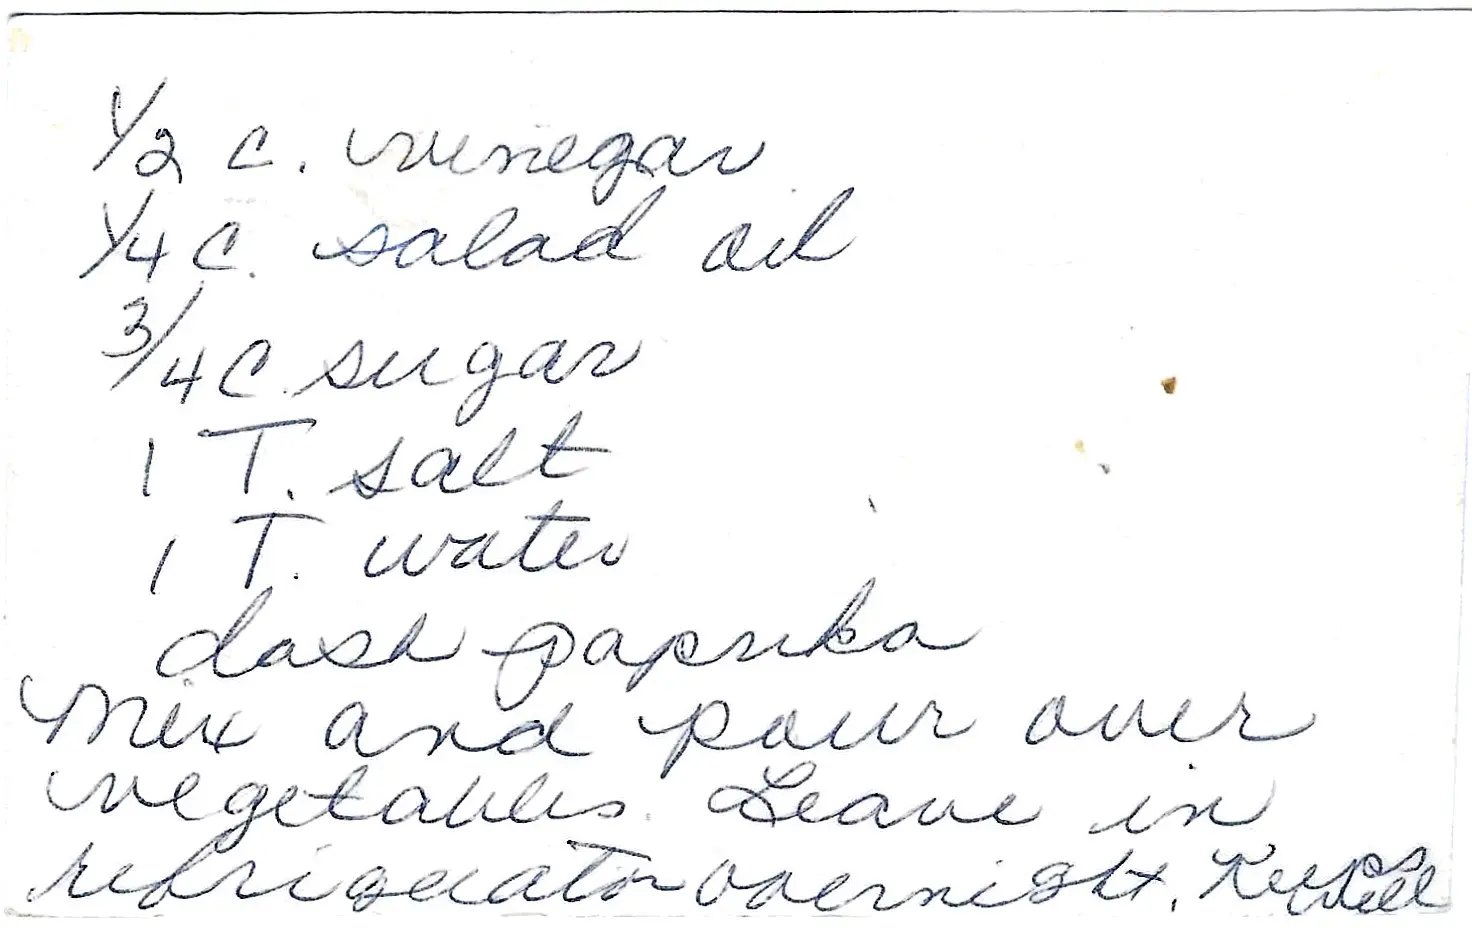 1/2 c. vinegar
1/4 c. salad oil
3/4 c. sugar
1 T. salt
1 T. water
dash paprika
Mix and pour over
vegetables. Leave in
refrigerator overnight. Keeps
well